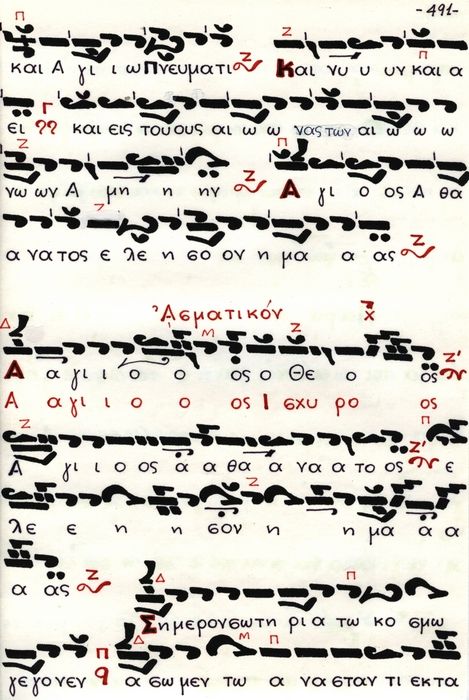 -491-
και Α γι ι ω Πνευματι Και νυ υ υν και α
ει και εις του ους αι ω ω νας των αι ω ω ω
νω ων Α μη η ην Α γι ο ος Α θα
α να τος ε λε η σο ον η μα α ας
Ἀσματικόν
Α α γι ι ο ο ος ο Θε ο ος
Α α γι ι ο ο ος Ι σχυ ρο ος
Α γι ι ο ος α α θα α να α το ος ε
λε ε η η σον η η μα α α
α ας
Σημερον σωτη ρι α τω κο σμω
γεγονεν α σωμεν τω α να σταν τι εκ τα